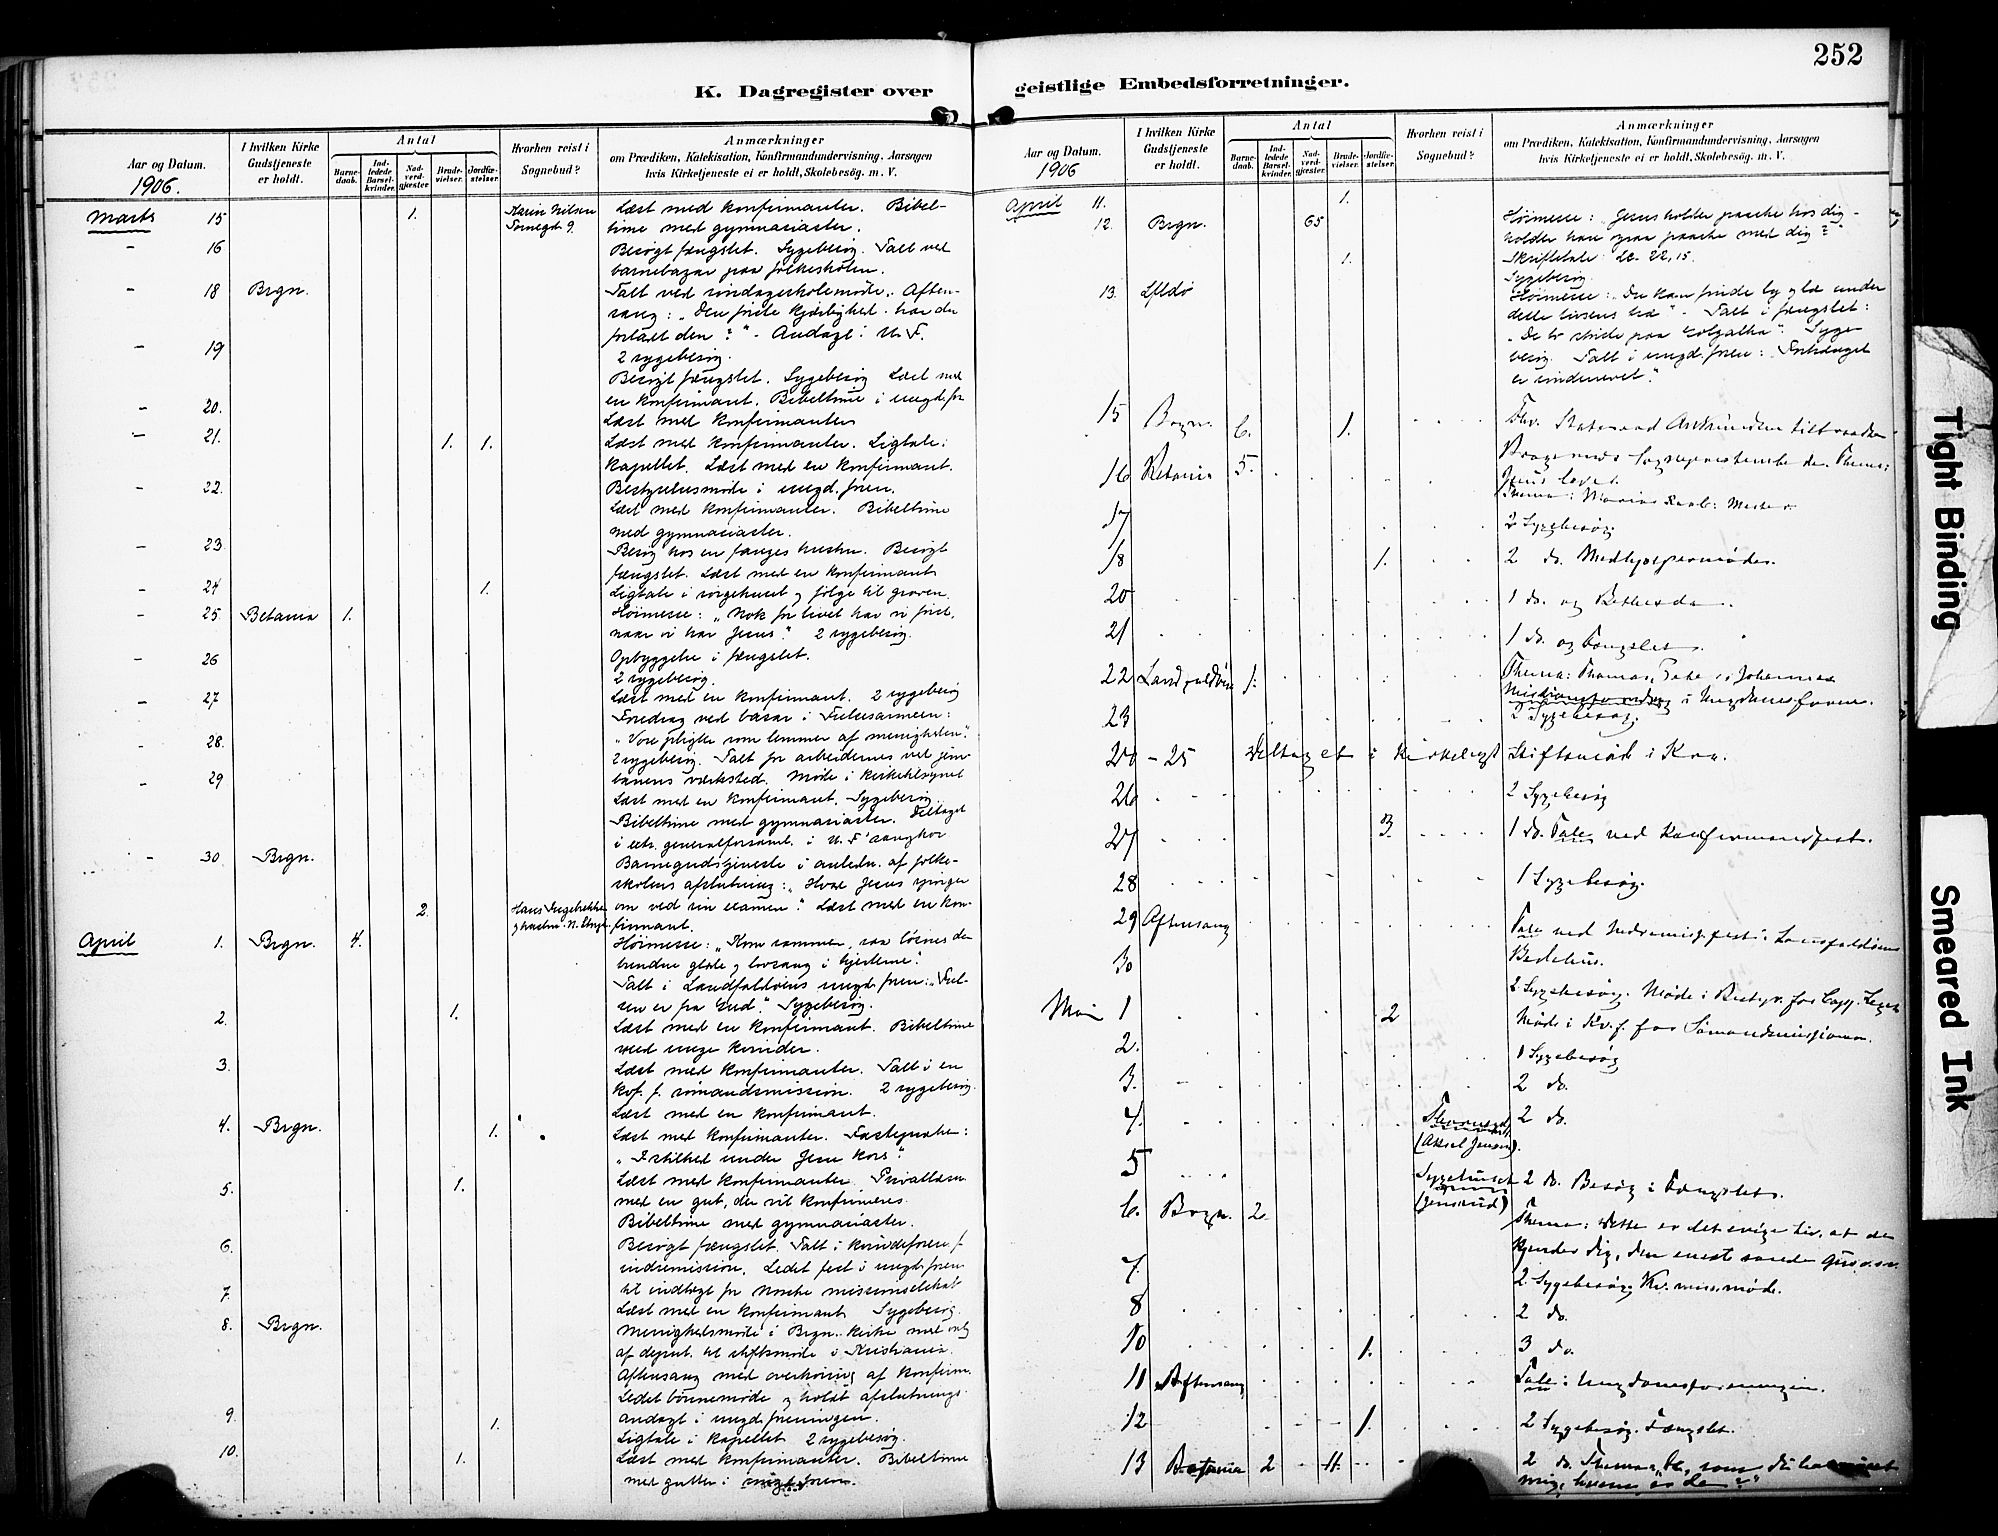 252
K. Dagregister over geistlige Embedsforretninger.
Aar og Datum.
1906.
I hvilken Kirke Gudstjeneste er holdt.
Antal
Barnedaab.
Indledede Barselkvinder.
Nadverdgjæster
Brudevielser.
Jordfæstelser.
Hvorhen reist i Sognebud?
Anmærkninger
om Prædiken, Katekisation, Konfirmandundervisning, Aarsagen
hvis Kirketjeneste ei er holdt, Skolebesøg. m. V.
Marts 15 1. Karin Nilsen Læst med konfirmanter. Bibel-
Tornegt 9. time med gymnasiaster.
- 16 Besøgt fængslet. Sygebesøg. Talt ved
barnebazar paa folkeskolen.
- 18 Brgn. Talt ved søndagsskolemøde. Aften-
sang: „Den første kjærlighed. har du
forladt den?" - Andagt i U. F.
- 19 2 sygebesøg.
Besøgt fængslet. Sygebesøg Læst med
en konfirmant. Bibeltime i ungd.for
- 20. Læst med konfirmanter
- 21. 1. 1. Læst med konfirmanter. Ligtale i
kapellet. Læst med en konfirmant.
Bestyrelsesmøde i ungd. foren.
- 22. Læst med konfirmanter. Bibeltime
med gymnasiaster.
- 23. Besøg hos en fanges hustru. Besøgt
fængslet. Læst med en konfirmant
- 24 1. Ligtale i sørgehuset og følge til graven.
- 25. Betania 1. Høimesse: „Nok for livet har vi først,
naar vi har Jesus." 2 sygebesøg.
- 26 Opbyggelse i fængslet.
2 sygebesøg.
- 27 Læst med en konfirmant. 2 sygebesøg
Foredrag ved basar i Frelsesarmeen:
„Vore pligter som lemmer af menigheden."
- 28. 2 sygebesøg. Talt for arbeidernes ved jern-
banens værksted. Møde i kirketilsynet
- 29 Læst med en konfirmant. Sygebesøg.
Bibeltime med gymnasiaster. Deltaget
i extr. generalforsaml. i U. F' sangkor
- 30. Brgn. Barnegudstjeneste i anledn. af folke-
skolens afslutning: „Hvad Jesus spørger
2. Hans om ved sin examen". Læst med en kon-
firmant.
April 1. Brgn. 4. Høimesse: „Kom sammen, saa løsnes den
bundne glæde og lovsang i hjerterne."
Talt i Landfaldøens ungd. foren: „Frel-
sen er fra Gud." Sygebesøg.
2. 1. Læst med en konfirmant. Bibeltime
med unge kvinder.
3. Læst med konfirmanter. Talt i en
kvf. f. sømandsmission. 2 sygebesøg.
Læst med en konfirmant.
4. Brgn. 1. Læst med konfirmanter. Fasteprædn:
„I stilhed under Jesu kors."
5. 1. Læst med konfirmanter. Privatlæsn.
med en gut, der vil konfirmeres.
Bibeltime med gymnasiaster.
6. Besøgt fængslet. Talt i kvindeforen. f
indremission. Ledet fest i ungd. foren
til indtægt for Norske missionsselskab
7. Læst med en konfirmant Sygebesøg.
8. Brgn. Menighedsmøde i Brgn. kirke med valg
af deput. til stiftsmøde i Kristiania.
Aftensang med overhøring af konfirm.
Ledet bønnemøde og holdt afslutnings-
andagt i ungd. foreningen.
9. 1. Ligtale i kapellet 2 sygebesøg.
10. 1. Læst med konfirmanter. Bibeltime
med gutter i ungd. foren.
Aar og Datum.
1906
I hvilken Kirke Gudstjeneste er holdt.
Antal
Barnedaab.
Indledede Barselkvinder.
Nadverdgjæster
Brudevielser.
Jordfæstelser.
Hvorhen reist i Sognebud?
Anmærkninger
om Prædiken, Katekisation, Konfirmandundervisning, Aarsagen
hvis Kirketjeneste ei er holdt, Skolebesøg. m. V.
April 11. 1.
12. Brgn. 65 Høimesse: „Jesus holder paaske hos dig -
holder han ogsaa paaske med dig?"
1. Skriftetale: Lc. 22, 15.
Sygebesøg.
13. Lfldø Høimesse: „Du kan finde ly og læ under
dette livsens træ" - Talt i fængslet:
„De to stride paa Golgatha". Syge-
besøg. Talt i ungd. foren: „Forhænget
er sønderrevet."
15 Brgn. 6. 1. Fhv. Statsraad
Bragernes Sogneprestembede. Thema:
Jesus lever.
16 Betania 5. Thema: Marias Raab: Mester
17 2 Sygebesøg
18 1. 2 do. Medhjælpermøde.
20 1 do. og Bethesda.
21 1 do. og Fængslet.
22 Landfaldøen 1. Thema: Thomas, Peter og Johannes
i Ungdomsforen.
23 2 Sygebesøg.
20 - 25 Deltaget i kirkeligt Stiftsmøde i Kra.
26 2 Sygebesøg
27 3. 1 do. Tale ved Konfirmandfest.
28 1 Sygebesøg.
29 Aftensang Tale ved Indremis.fest i Landfaldøens
Bedehus.
30 2 Sygebesøg. Møde i Bestyr. for
Mai 1 2 Møde i Kv.f. for Sømandsmissionen.
2. 1 Sygebesøg
3. 2 do.
4. 2 do.
(Aksel Jensen).
5 Sygehuset 2 do. Besøg i Fængslet.
6. Brgn. 2. Thema: Dette er det evige liv, at de
kjender dig, den eneste sande Gud o.s.v.
7. 2 Sygebesøg. Kv. miss. møde.
8 2 do.
10 1. 3 do.
11 Aftensang Tale i Ungdomsforeningen.
12 1. 2 Sygebesøg. Fængslet.
13 Betania 2 11. 2 do. Thema: